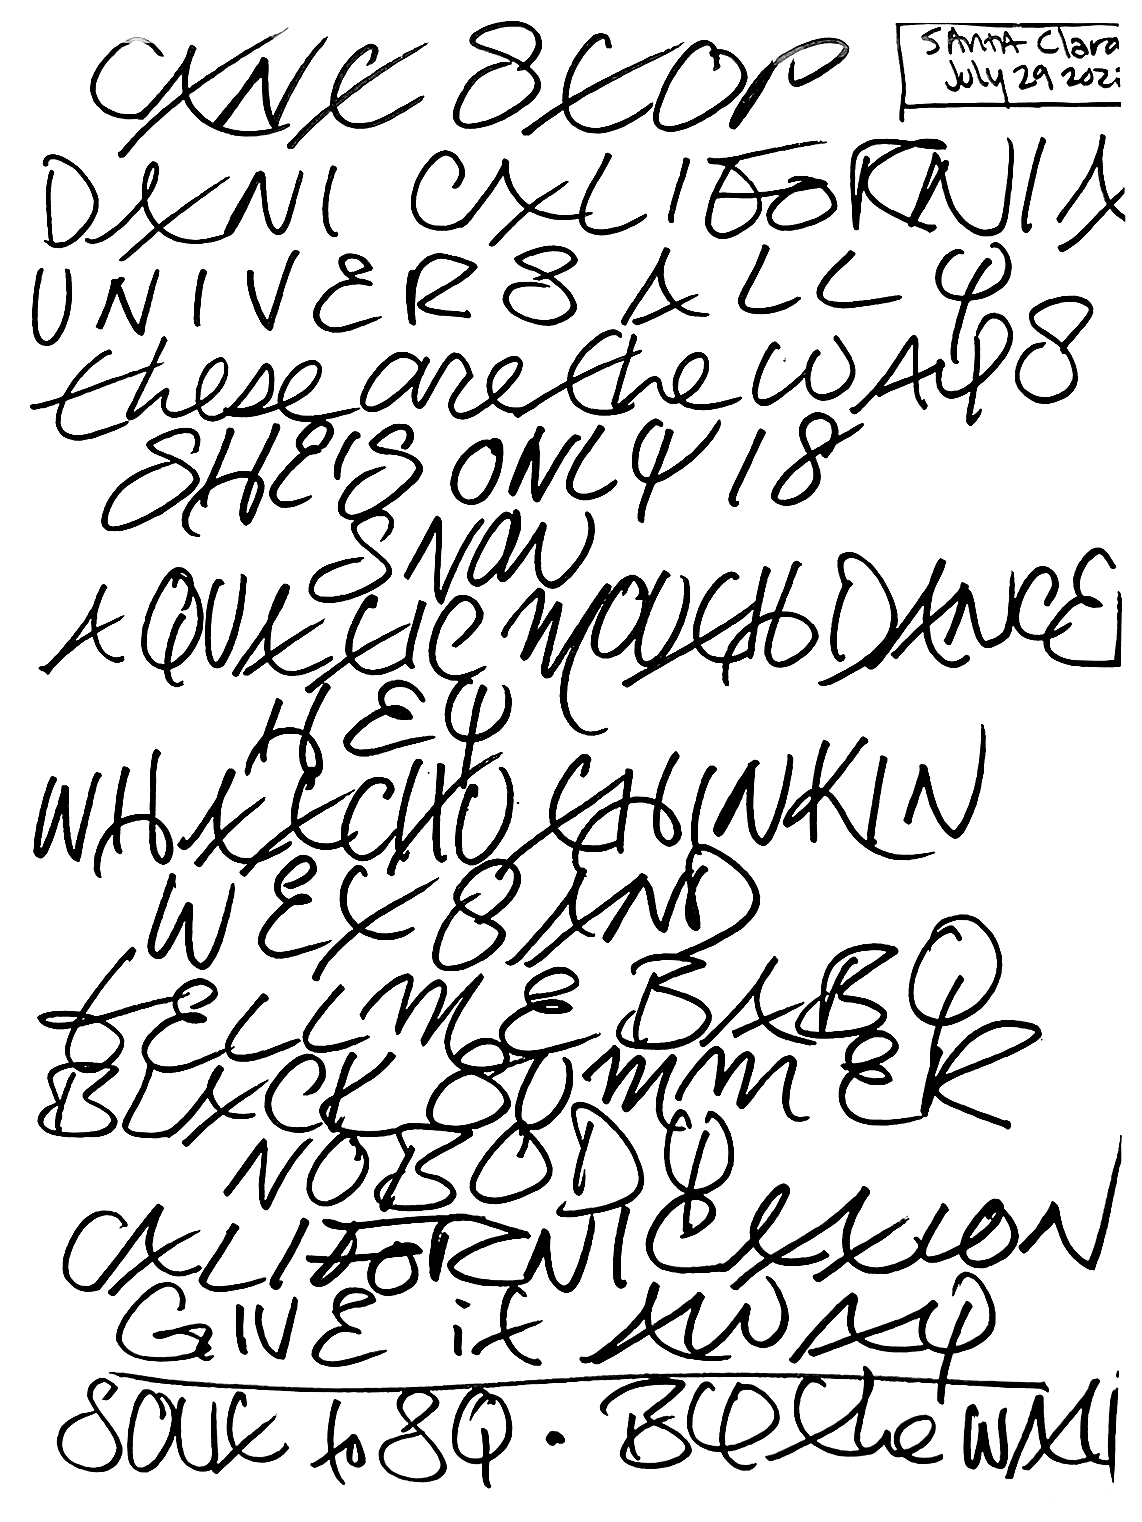 SANTA Clara
July 29 202
CAN'T STOP
DANI CALIFORNIA
UNIVERSALLY
these are the WAYS
SHE'S ONLY 18
SNOW
AQUATIC MOUTH DANCE
HEY
WHATCHU THINKIN
WET SAND
TELL ME BABY
BLACK SUMMER
NOBODY
CALIFORNICATION
GIVE it AWAY
SOUL to SQ · BY the WAY